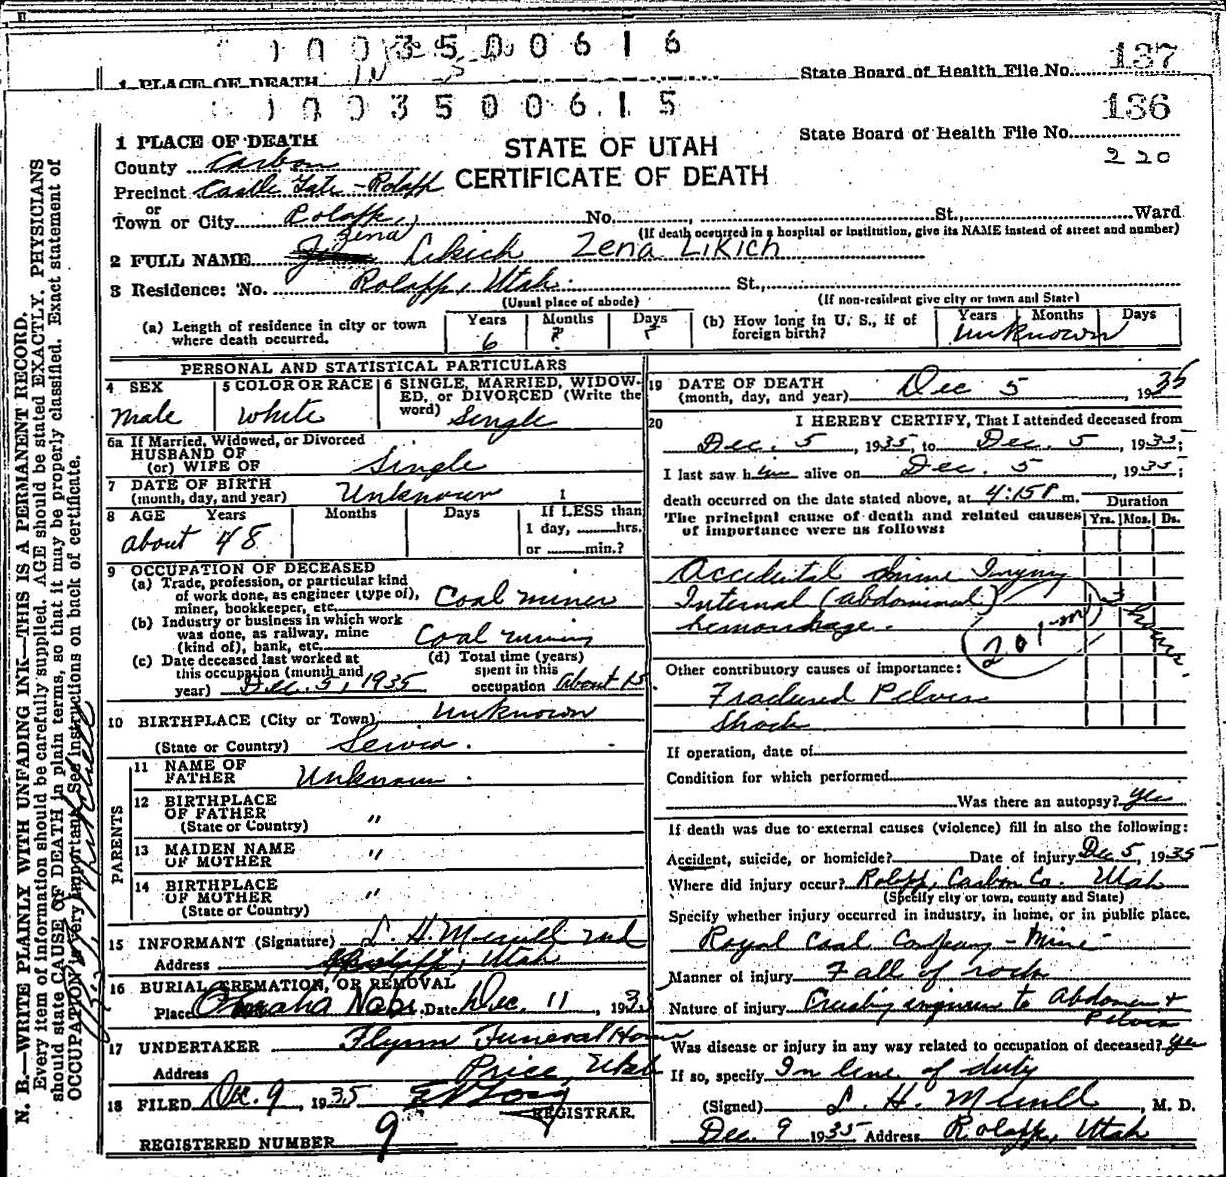 1 0 0 3 5 0 0 6 1 6
1 PLACE OF DEATH State Board of Health File No. 137
1 0 0 3 5 0 0 6 1 5 136
1 PLACE OF DEATH STATE OF UTAH State Board of Health File No.
County Carbon CERTIFICATE OF DEATH 220
Precinct Castle Gate - Rolapp
or
Town or City Rolapp, No. , St., Ward
(If death occurred in a hospital or institution, give its NAME instead of street and number)
Zena
2 FULL NAME Likich Zena Likich
3 Residence: No. Rolapp, Utah. St.,
(Usual place of abode) (If non-resident give city or town and State)
(a) Length of residence in city or town where death occurred. Years 6 Months ? Days ? (b) How long in U. S., if of foreign birth? Years Months Days Unknown
PERSONAL AND STATISTICAL PARTICULARS
4 SEX 5 COLOR OR RACE 6 SINGLE, MARRIED, WIDOW-
ED, or DIVORCED (Write the
word)
male white Single
6a If Married, Widowed, or Divorced
HUSBAND OF
(or) WIFE OF Single
7 DATE OF BIRTH
(month, day, and year) Unknown 1
8 AGE Years Months Days If LESS than
1 day, hrs.
or min.?
about 48
9 OCCUPATION OF DECEASED
(a) Trade, profession, or particular kind
of work done, as engineer (type of),
miner, bookkeeper, etc. Coal miner
(b) Industry or business in which work
was done, as railway, mine
(kind of), bank, etc. Coal mining
(c) Date deceased last worked at
this occupation (month and
year) Dec. 5, 1935
(d) Total time (years)
spent in this
occupation about 15
10 BIRTHPLACE (City or Town) Unknown
(State or Country) Servia.
PARENTS
11 NAME OF
FATHER Unknown.
12 BIRTHPLACE
OF FATHER "
(State or Country)
13 MAIDEN NAME
OF MOTHER "
14 BIRTHPLACE
OF MOTHER "
(State or Country)
15 INFORMANT (Signature) L. H. Merrill md
Address Rolapp, Utah
16 BURIAL, CREMATION, OR REMOVAL
Place Omaha Nebr. Date Dec. 11, 1935
17 UNDERTAKER Flynn Funeral Home
Address Price, Utah
18 FILED Dec. 9, 1935
REGISTRAR.
REGISTERED NUMBER 9
19 DATE OF DEATH
(month, day, and year) Dec 5, 1935
20 I HEREBY CERTIFY, That I attended deceased from
Dec. 5, 1935, to Dec. 5, 1935;
I last saw him alive on Dec. 5, 1935;
death occurred on the date stated above, at 4:15 P m.
The principal cause of death and related causes
of importance were as follows:
Duration
Yrs. Mos. Ds.
Accidental mine Injury
Internal (abdominal)
hemorrhage.
3 hours
201-m
Other contributory causes of importance:
Fractured Pelvis
Shock
If operation, date of
Condition for which performed
Was there an autopsy? yes
If death was due to external causes (violence) fill in also the following:
Accident, suicide, or homicide? Date of injury Dec 5, 1935
Where did injury occur? Rolapp, Carbon Co. Utah
(Specify city or town, county and State)
Specify whether injury occurred in industry, in home, or in public place.
Royal Coal Company - Mine
Manner of injury Fall of rock
Nature of injury Crushing injuries to Abdomen +
Pelvis
Was disease or injury in any way related to occupation of deceased? yes
If so, specify In line of duty
(Signed) L. H. Merrill, M. D.
Dec. 9 1935 Address Rolapp, Utah
N. B.—WRITE PLAINLY WITH UNFADING INK—THIS IS A PERMANENT RECORD.
Every item of information should be carefully supplied. AGE should be stated EXACTLY. PHYSICIANS
should state CAUSE OF DEATH in plain terms, so that it may be properly classified. Exact statement of
OCCUPATION is very important. See instructions on back of certificate.